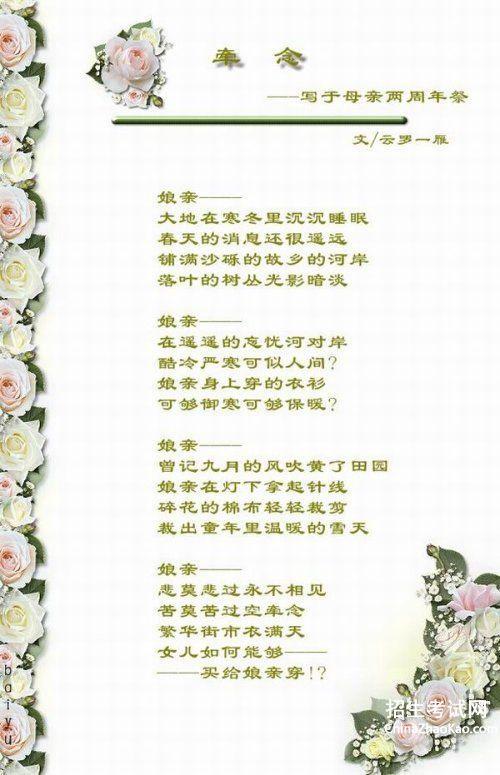 牵 念
——写于母亲两周年祭
文/云罗一雁
娘亲——
大地在寒冬里沉沉睡眠
春天的消息还很遥远
铺满沙砾的故乡的河岸
落叶的树丛光影暗淡
娘亲——
在遥遥的忘忧河对岸
酷冷严寒可似人间?
娘亲身上穿的衣衫
可够御寒可够保暖?
娘亲——
曾记九月的风吹黄了田园
娘亲在灯下拿起针线
碎花的棉布轻轻裁剪
裁出童年里温暖的雪天
娘亲——
悲莫悲过永不相见
苦莫苦过空牵念
繁华街市衣满天
女儿如何能够——
——买给娘亲穿!?
baiyu
招生考试网
ChinaZhaoKao.com